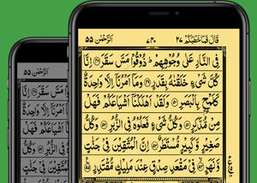 قَالَ فَمَا خَطْبُكُمْ ٢٧ الرَّحْمٰن ٥٥
فِي النَّارِ عَلٰى وُجُوْهِهِمْ ؕ ذُوْقُوْا مَسَّ سَقَرَ اِنَّا
كُلَّ شَيْءٍ خَلَقْنٰهُ بِقَدَرٍ وَمَاۤ اَمْرُنَاۤ اِلَّا وَاحِدَةٌ
كَلَمْحٍۭ بِالْبَصَرِ وَلَقَدْ اَهْلَكْنَاۤ اَشْيَاعَكُمْ فَهَلْ
مِنْ مُّدَّكِرٍ وَكُلُّ شَيْءٍ فَعَلُوْهُ فِي الزُّبُرِ وَكُلُّ
صَغِيْرٍ وَّكَبِيْرٍ مُّسْتَطَرٌ اِنَّ الْمُتَّقِيْنَ فِيْ جَنّٰتٍ
وَّنَهَرٍ فِيْ مَقْعَدِ صِدْقٍ عِنْدَ مَلِيْكٍ مُّقْتَدِرٍ
الرَّحْمٰن ٥٥